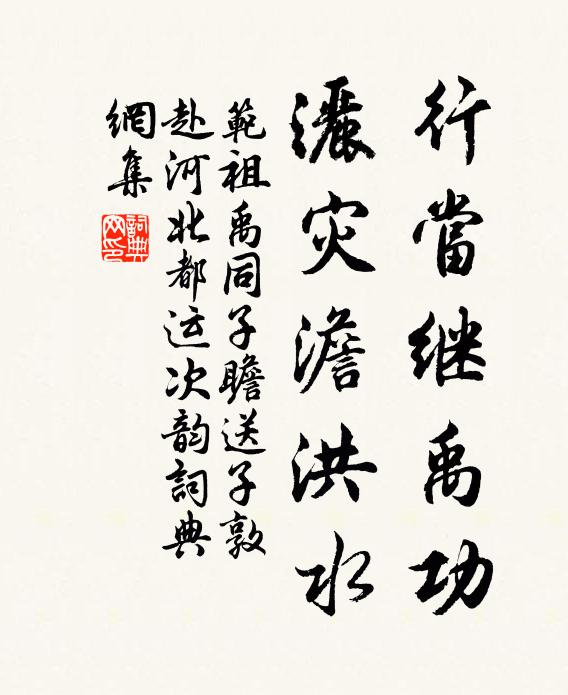 行當继禹功
灑灾澹洪水
範祖禹同子瞻送子敦
赴河北都运次韵詞典
網集
詞典
网印